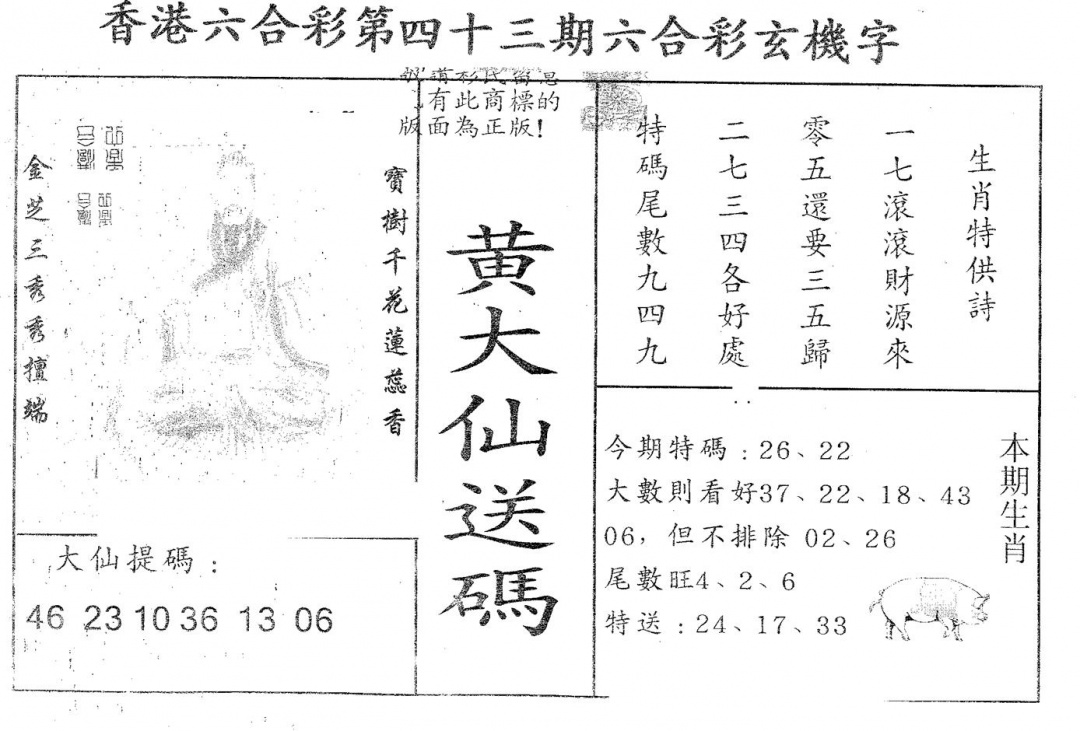 香港六合彩第四十三期六合彩玄機字
有此商標的
版面為正版!
生肖特供詩
一七滾滾財源來
零五還要三五歸
二七三四各好處
特碼尾數九四九
黃大仙送碼
寶樹千花蓮蕊香
金芝三秀秀擅端
大仙提碼：
46 23 10 36 13 06
本期生肖
今期特碼：26、22
大數則看好37、22、18、43
06，但不排除 02、26
尾數旺4、2、6
特送：24、17、33